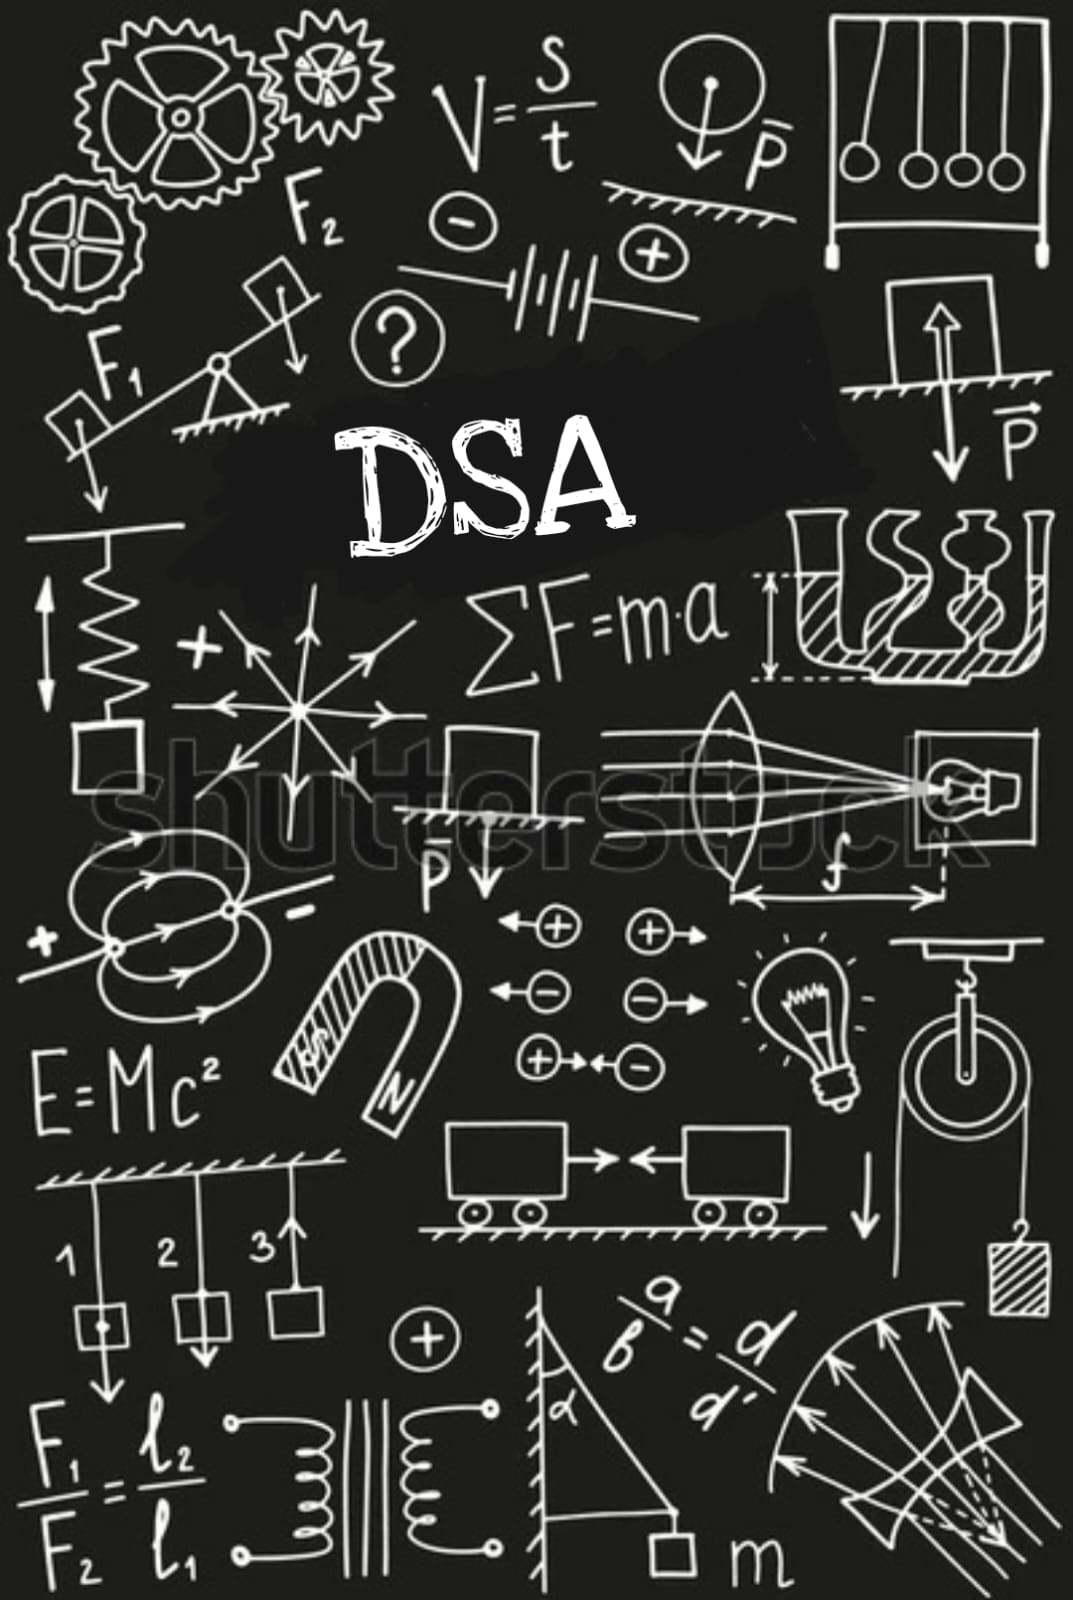 V = s/t
p̄
F₂
−
+
?
F₁
DSA
p⃗
ΣF=m·a
+
shutterstock
f
p̄
+
−
+ +
− −
+ −
S
N
E=Mc²
1 2 3
+
a/b = d/d'
α
F₁/F₂ = l₂/l₁
m